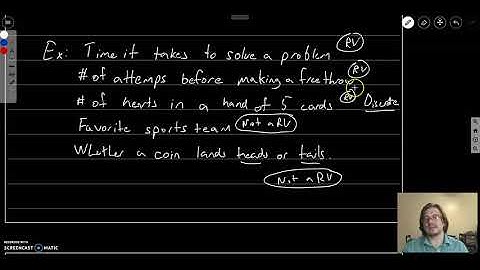 Ex: Time it takes to solve a problem RV
# of attemps before making a free throw RV
# of hearts in a hand of 5 cards RV Discrete
Favorite sports team Not a RV
Whether a coin lands heads or tails.
Not a RV
RECORDED WITH
SCREENCAST MATIC